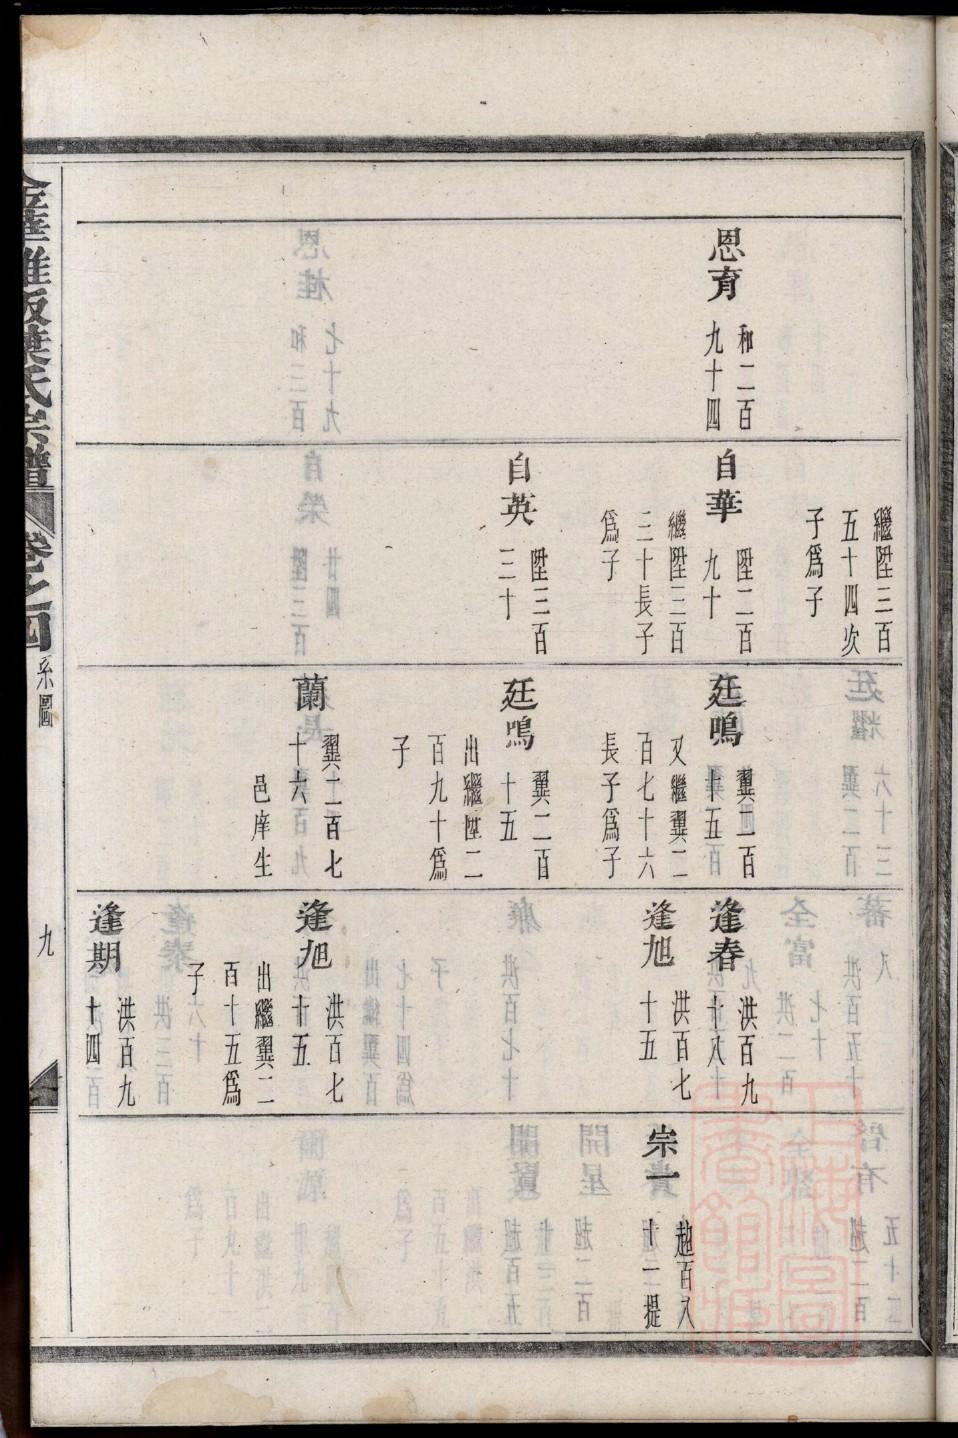 恩育
和二百
九十四
繼陞三百
五十四次
子爲子
自華
陞二百
九十
繼陞三百
三十長子
爲子
自英
陞三百
三十
廷鳴
翼二百
十五
又繼翼二
百七十六
長子爲子
廷鳴
翼二百
十五
出繼陞二
百九十爲
子
蘭
翼二百七
十六
邑庠生
逢春
洪百九
十八
逢旭
洪百七
十五
逢旭
洪百七
十五
出繼翼二
百十五爲
子
逢期
洪百九
十四
宗一
趙百八
十一提
金華雅畈葉氏宗譜
卷之四
系圖
九